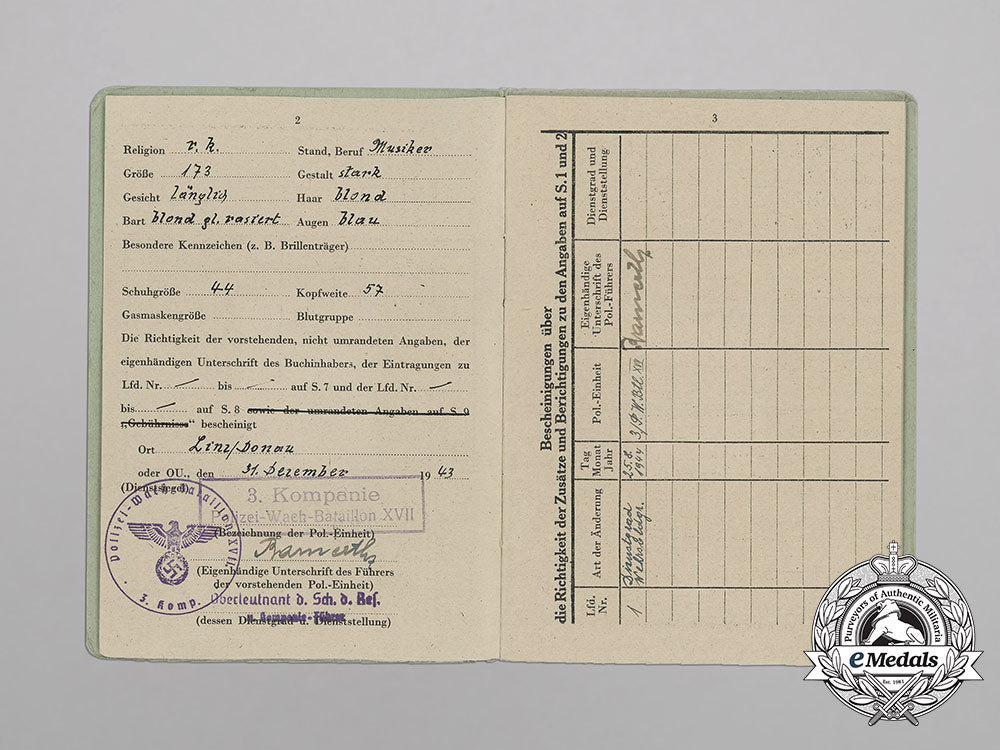 2
Religion r. k. Stand, Beruf Musiker
Größe 173 Gestalt stark
Gesicht länglich Haar blond
Bart blond gl. rasiert Augen blau
Besondere Kennzeichen (z. B. Brillenträger)
Schuhgröße 44 Kopfweite 57
Gasmaskengröße Blutgruppe
Die Richtigkeit der vorstehenden, nicht umrandeten Angaben, der
eigenhändigen Unterschrift des Buchinhabers, der Eintragungen zu
Lfd. Nr. — bis — auf S. 7 und der Lfd. Nr. —
bis — auf S. 8 sowie der umrandeten Angaben auf S. 9
„Gebührnisse“ bescheinigt
Ort Linz/Donau
oder OU., den 31. Dezember 1943
(Dienstsiegel)
Polizei-Wach-Bataillon XVII
3. Komp.
3. Kompanie
Polizei-Wach-Bataillon XVII
(Bezeichnung der Pol.-Einheit)
(Eigenhändige Unterschrift des Führers
der vorstehenden Pol.-Einheit)
Oberleutnant d. Sch. d. Res.
u. Kompanie-Führer
(dessen Dienstgrad u. Dienststellung)
3
Bescheinigungen über
die Richtigkeit der Zusätze und Berichtigungen zu den Angaben auf S. 1 und 2
Lfd. Nr.
Art der Änderung
Tag Monat Jahr
Pol.-Einheit
Eigenhändige Unterschrift des Pol.-Führers
Dienstgrad und Dienststellung
1
Dienstgrad
25.8. 1944
Purveyors of Authentic Militaria
eMedals
Est. 1981